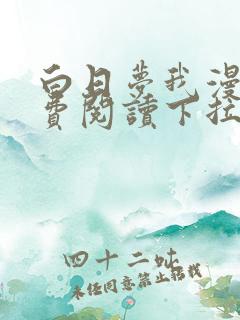 白日夢我漫
費閱讀下拉
四十二呔
未经同意禁止转载